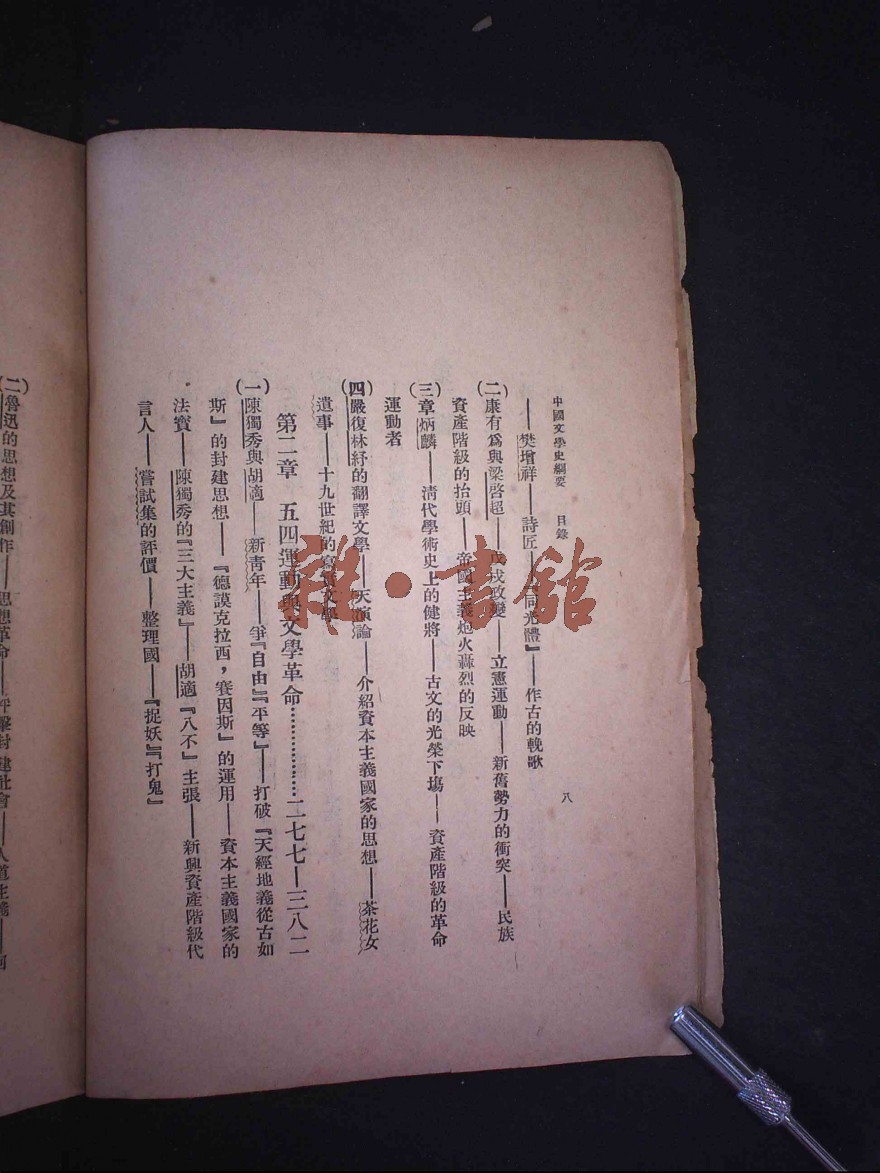 中國文學史綱要 目錄 八
——樊增祥——詩匠——同光體』——作古的輓歌
(二)康有爲與梁啓超——戊戌政變——立憲運動——新舊勢力的衝突——民族
資產階級的抬頭——帝國主義炮火轟烈的反映
(三)章炳麟——清代學術史上的健將——古文的光榮下場——資產階級的革命
運動者
(四)嚴復林紓的翻譯文學——天演論——介紹資本主義國家的思想——茶花女
遺事——十九世紀的文學
第二章 五四運動與文學革命……………二七七—三八二
(一)陳獨秀與胡適——新青年——爭『自由』『平等』——打破『天經地義從古如
斯』的封建思想——『德謨克拉西，賽因斯』的運用——資本主義國家的
法寶——陳獨秀的『三大主義』——胡適『八不』主張——新興資產階級代
言人——嘗試集的評價——整理國——『捉妖』『打鬼』
(二)魯迅的思想及其創作——思想革命——抨擊封建社會——人道主義——
雜·書館